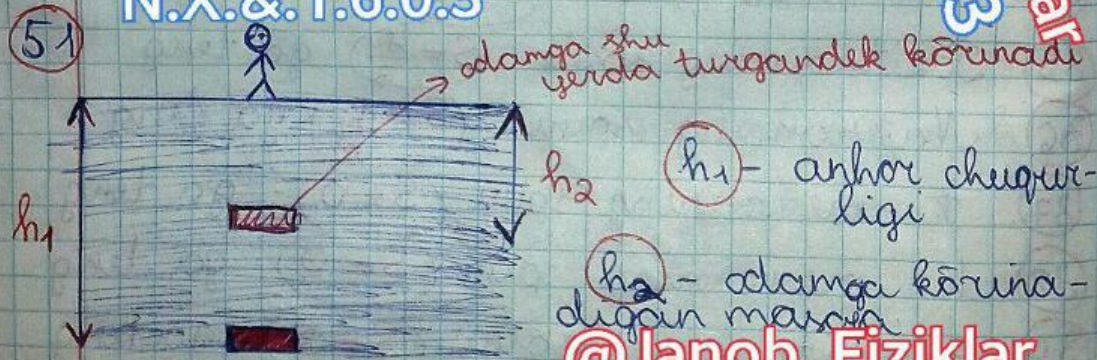 N.X.&.1.6.0.3
51
odamga shu
yerda turgandek kōrinadi
h1
h2
h1 - anhor chuqur-
ligi
h2 - odamga kōrina-
digan masofa
@Janob_Fiziklar
3
ar